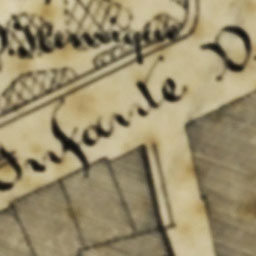 D. Henrique
Infante D.